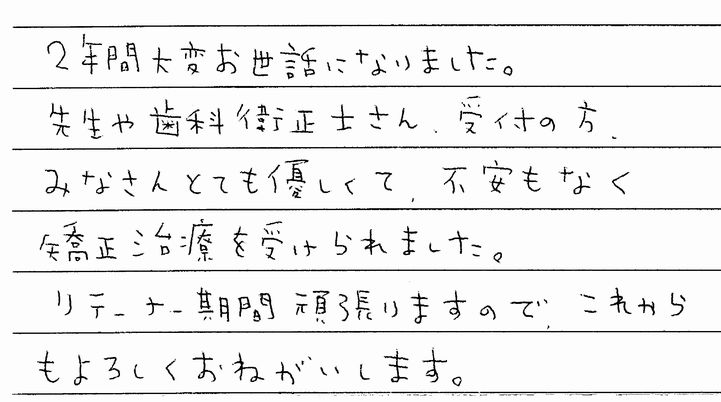 2年間大変お世話になりました。
先生や歯科衛正士さん、受付の方、
みなさんとても優しくて、不安もなく
矯正治療を受けられました。
リテーナー期間頑張りますので、これから
もよろしくおねがいします。